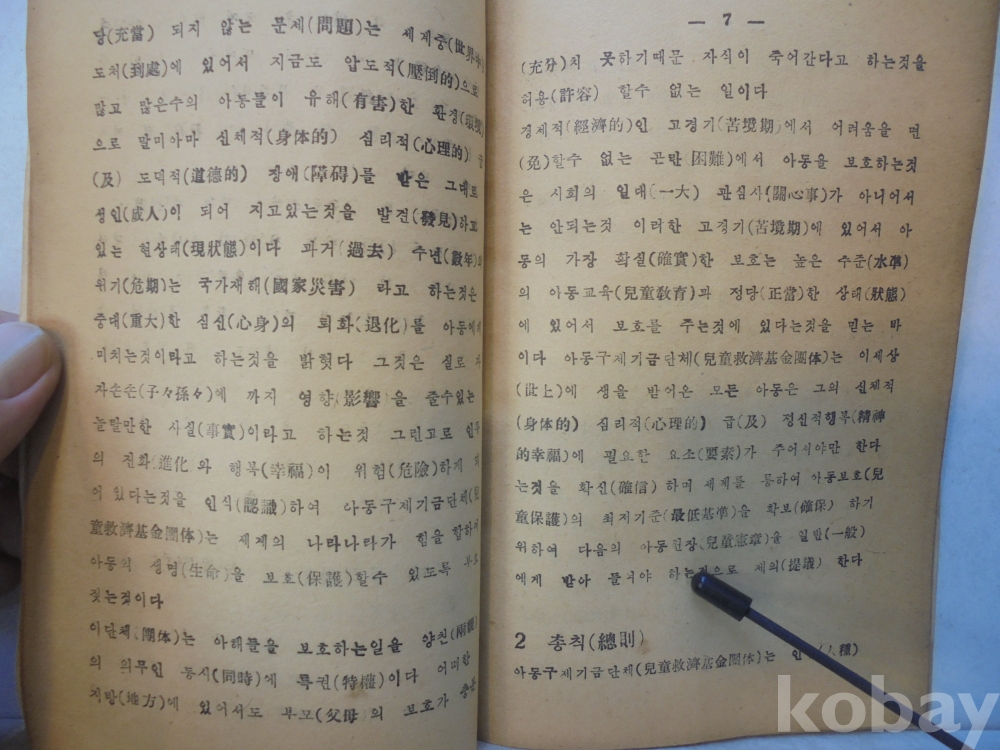 당(充當) 되지 않는 문제(問題)는 세계중(世界中)
도처(到處)에 있어서 지금도 압도적(壓倒的)으로
많고 많은수의 아동들이 유해(有害)한 환경(環境)
으로 말미아마 신체적(身体的) 심리적(心理的) 급
(及) 도덕적(道德的) 장애(障碍)를 받은 그대로
성인(成人)이 되어 지고있는것을 발견(發見)하고
있는 현상태(現狀態)이다 과거(過去) 수년(數年)의
위기(危期)는 국가재해(國家災害) 라고 하는것은
중대(重大)한 심신(心身)의 퇴화(退化)를 아동에게
미치는것이라고 하는것을 밝혓다 그것은 실로 자
자손손(子々孫々)에 까지 영향(影響)을 줄수있는
놀랄만한 사실(事實)이라고 하는것 그런고로 인류
의 진화(進化)와 행복(幸福)이 위험(危險)하게 되
어 있다는것을 인식(認識)하여 아동구제기금단체(兒
童救濟基金團体)는 세계의 나라나라가 힘을 합하여
아동의 생명(生命)을 보호(保護)할수 있도록 부르
짖는것이다
이단체(團体)는 아해들을 보호하는일을 양친(兩親)
의 의무인 동시(同時)에 특권(特權)이다 어떠한
지방(地方)에 있어서도 부모(父母)의 보호가 충분
— 7 —
(充分)치 못하기때문 자식이 죽어간다고 하는것을
허용(許容) 할수 없는 일이다
경제적(經濟的)인 고경기(苦境期)에서 어려움을 면
(免)할수 없는 곤란(困難)에서 아동을 보호하는것
은 사회의 일대(一大) 관심사(關心事)가 아니어서
는 안되는것 이러한 고경기(苦境期)에 있어서 아
동의 가장 확실(確實)한 보호는 높은 수준(水準)
의 아동교육(兒童敎育)과 정당(正當)한 상태(狀態)
에 있어서 보호를 주는것에 있다는것을 믿는 바
이다 아동구제기금단체(兒童救濟基金團体)는 이세상
(世上)에 생을 받어온 모든 아동은 그의 신체적
(身体的) 심리적(心理的) 급(及) 정신적행복(精神
的幸福)에 필요한 요소(要素)가 주어저야만 한다
는것을 확신(確信)하며 세계를 통하여 아동보호(兒
童保護)의 최저기준(最低基準)을 확보(確保) 하기
위하여 다음의 아동헌장(兒童憲章)을 일반(一般)
에게 받아 들려야 하는것으로 제의(提議) 한다
2 총칙(總則)
아동구제기금단체(兒童救濟基金團体)는 인종(人種)
kobay